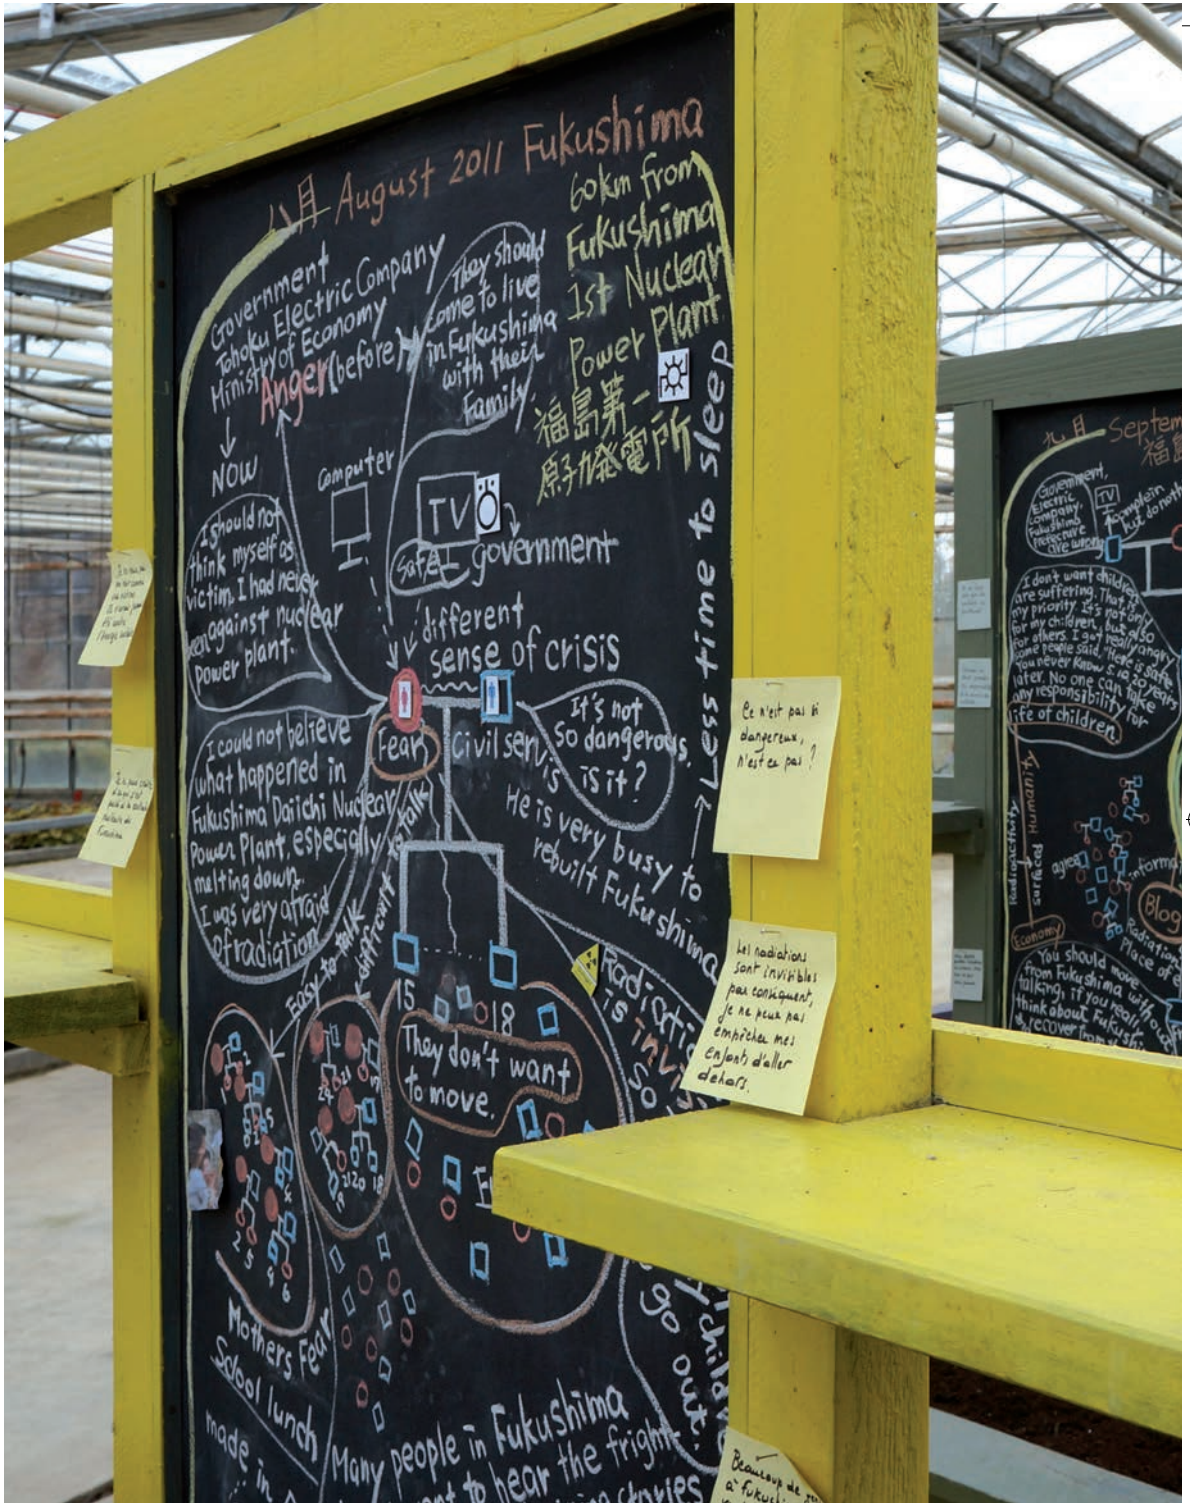 八月 August 2011 Fukushima
60km from
Fukushima
1st Nuclear
Power Plant
福島第一
原子力発電所
Government
Tohoku Electric Company
Ministry of Economy
Anger (before)
↓
NOW
They should
come to live
in Fukushima
with their
Family.
I should not
think myself as
victim. I had never
been against nuclear
power plant.
Computer
TV
safe
government
different
sense of crisis
Fear
Civil servis
It's not
so dangerous,
is it?
He is very busy to
rebuilt Fukushima
→ Less time to sleep
I could not believe
what happened in
Fukushima Daiichi Nuclear
Power Plant, especially
melting down.
I was very afraid
of radiation
Easy to talk
difficult to talk
15
18
They don't want
to move.
Radiati
is invi
so
go out.
Mothers Fear
School lunch
made in
Many people in Fukushima
to hear the fright
stories
Ce n'est pas si
dangereux,
n'est ce pas ?
Les radiations
sont invisibles
par conséquent,
je ne peux pas
empêcher mes
enfants d'aller
dehors.
Beaucoup de
à Fukush
九月 Septem
福島
Government,
Electric
company,
Fukushima
prefecture
are wrong
TV
complain
but do noth
I don't want children
are suffering. That is
my priority. It's not only
for my children, but also
for others. I got really angry
some people said, "Here is safe."
You never know 5, 10, 20 years
later. No one can take
any responsibility for
life of children.
Radioactivity
surfaced Humanity
agree
informa
Blog
Radiation
Place of e
Economy
You should move
from Fukushima without
talking, if you really
think about Fukushi
recover from